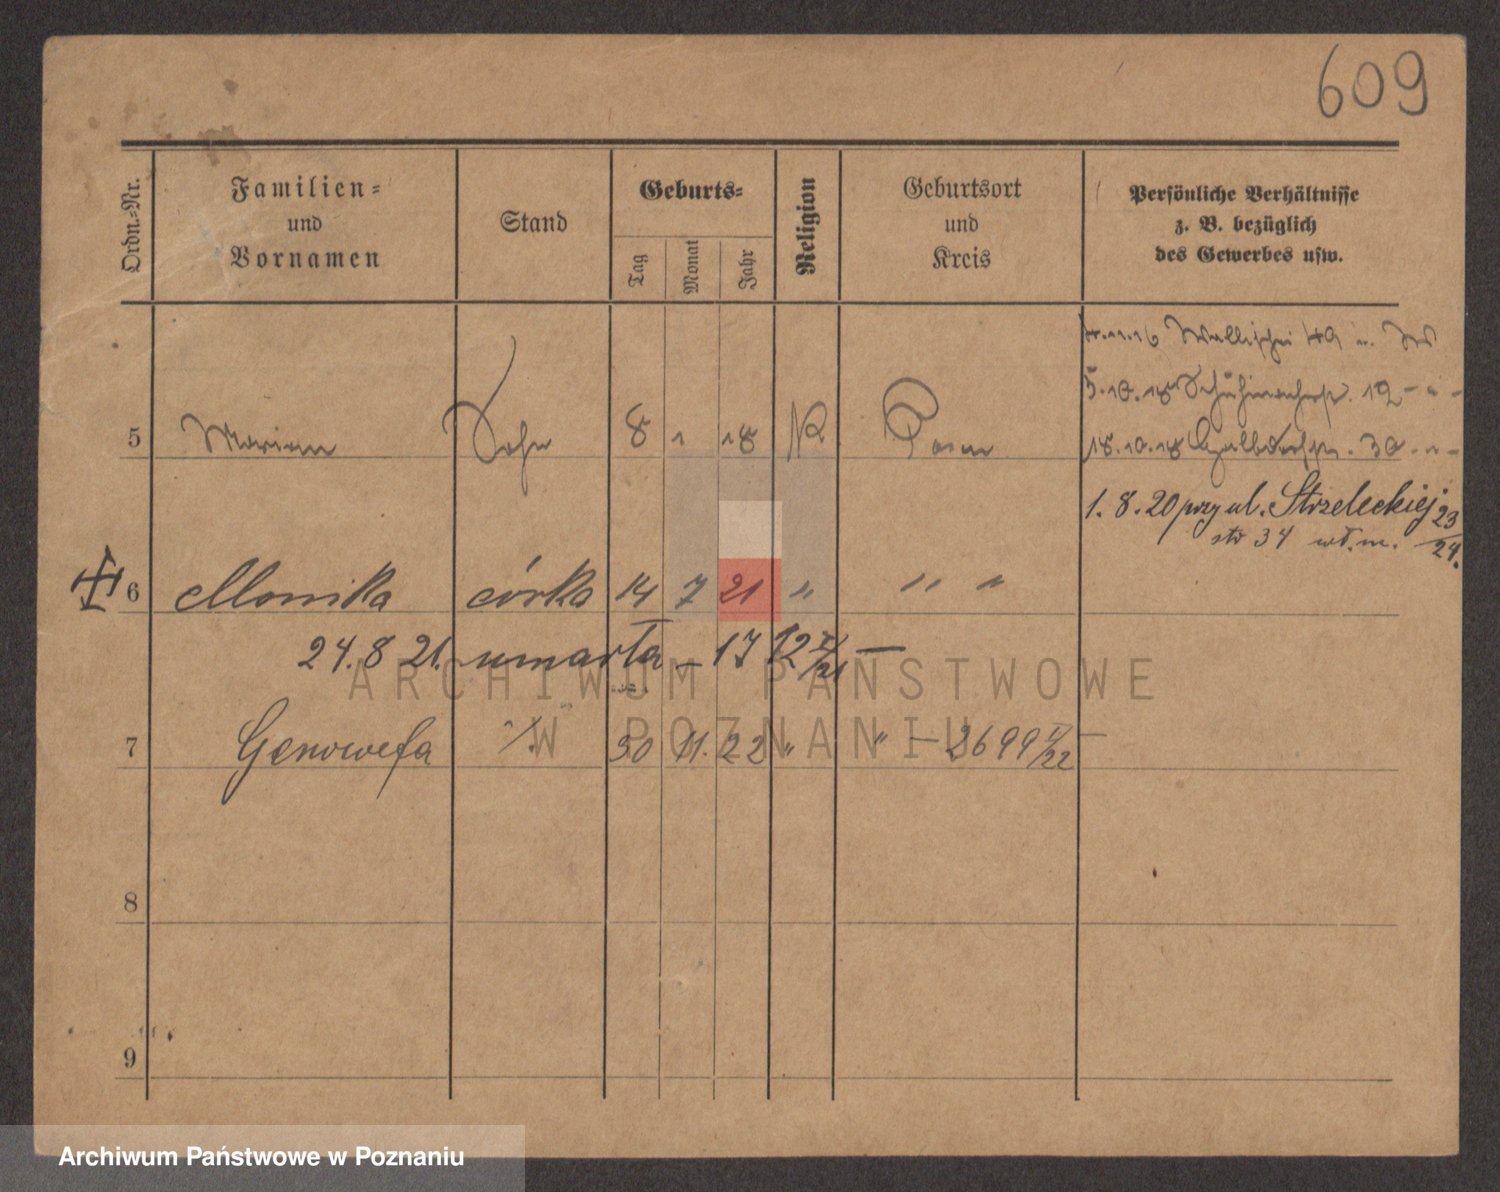 609
Ordn.-Nr.
Familien-
und
Vornamen
Stand
Geburts-
Tag
Monat
Jahr
Religion
Geburtsort
und
Kreis
Persönliche Verhältnisse
z. B. bezüglich
des Gewerbes usw.
4.11.16 Wallischei
5.10.18 12 - " -
5 Marian Sohn 8 1 18 K Posen
18.10.18 30 - " -
1. 8. 20 przy ul. Strzeleckiej 23/24.
str 34 wł. m.
6 Monika córka 14 7 21 " " "
24. 8 21. umarła - 1712 /21 -
7 Genowefa ./. 30 11. 22 " " - 2699 /22 -
8
9
ARCHIWUM PAŃSTWOWE
W POZNANIU
Archiwum Państwowe w Poznaniu